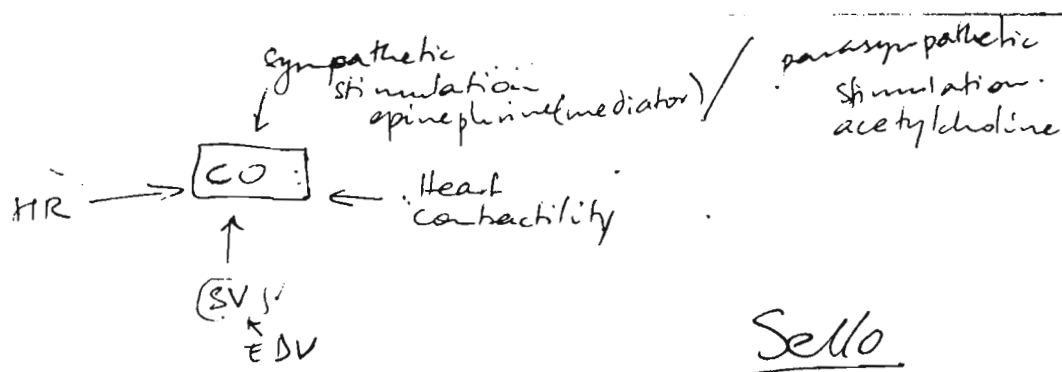 sympathetic
stimulation
epinephrine(mediator) /
parasympathetic
stimulation.
acetylcholine
HR
CO
Heart
contractility
(SV)
EDV
Sello